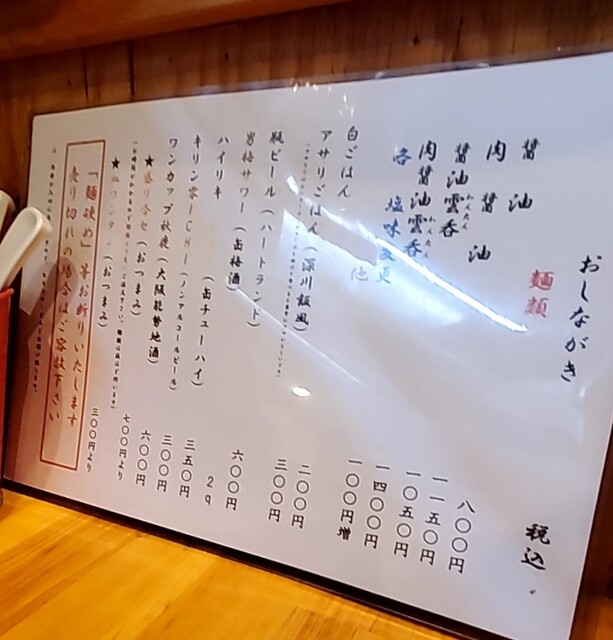 おしながき
税込
麺類
醤油
八〇〇円
肉醤油
一一五〇円
醤油雲呑
わんたん
一〇五〇円
肉醤油雲呑
わんたん
一四〇〇円
各塩味変更
一〇〇円増
他
白ごはん
二〇〇円
アサリごはん（深川飯風）
三〇〇円
瓶ビール（ハートランド）
六〇〇円
男梅サワー（缶梅酒）
ハイリキ（缶チューハイ）
三五〇円
キリン零ICHI（ノンアルコールビール）
三〇〇円
ワンカップ秋鹿（大阪能勢地酒）
六〇〇円
★盛り合せ（おつまみ）
七〇〇円より
ワンタン（おつまみ）
三〇〇円より
「麺硬め」等お断りいたします
売り切れの場合はご容赦下さい